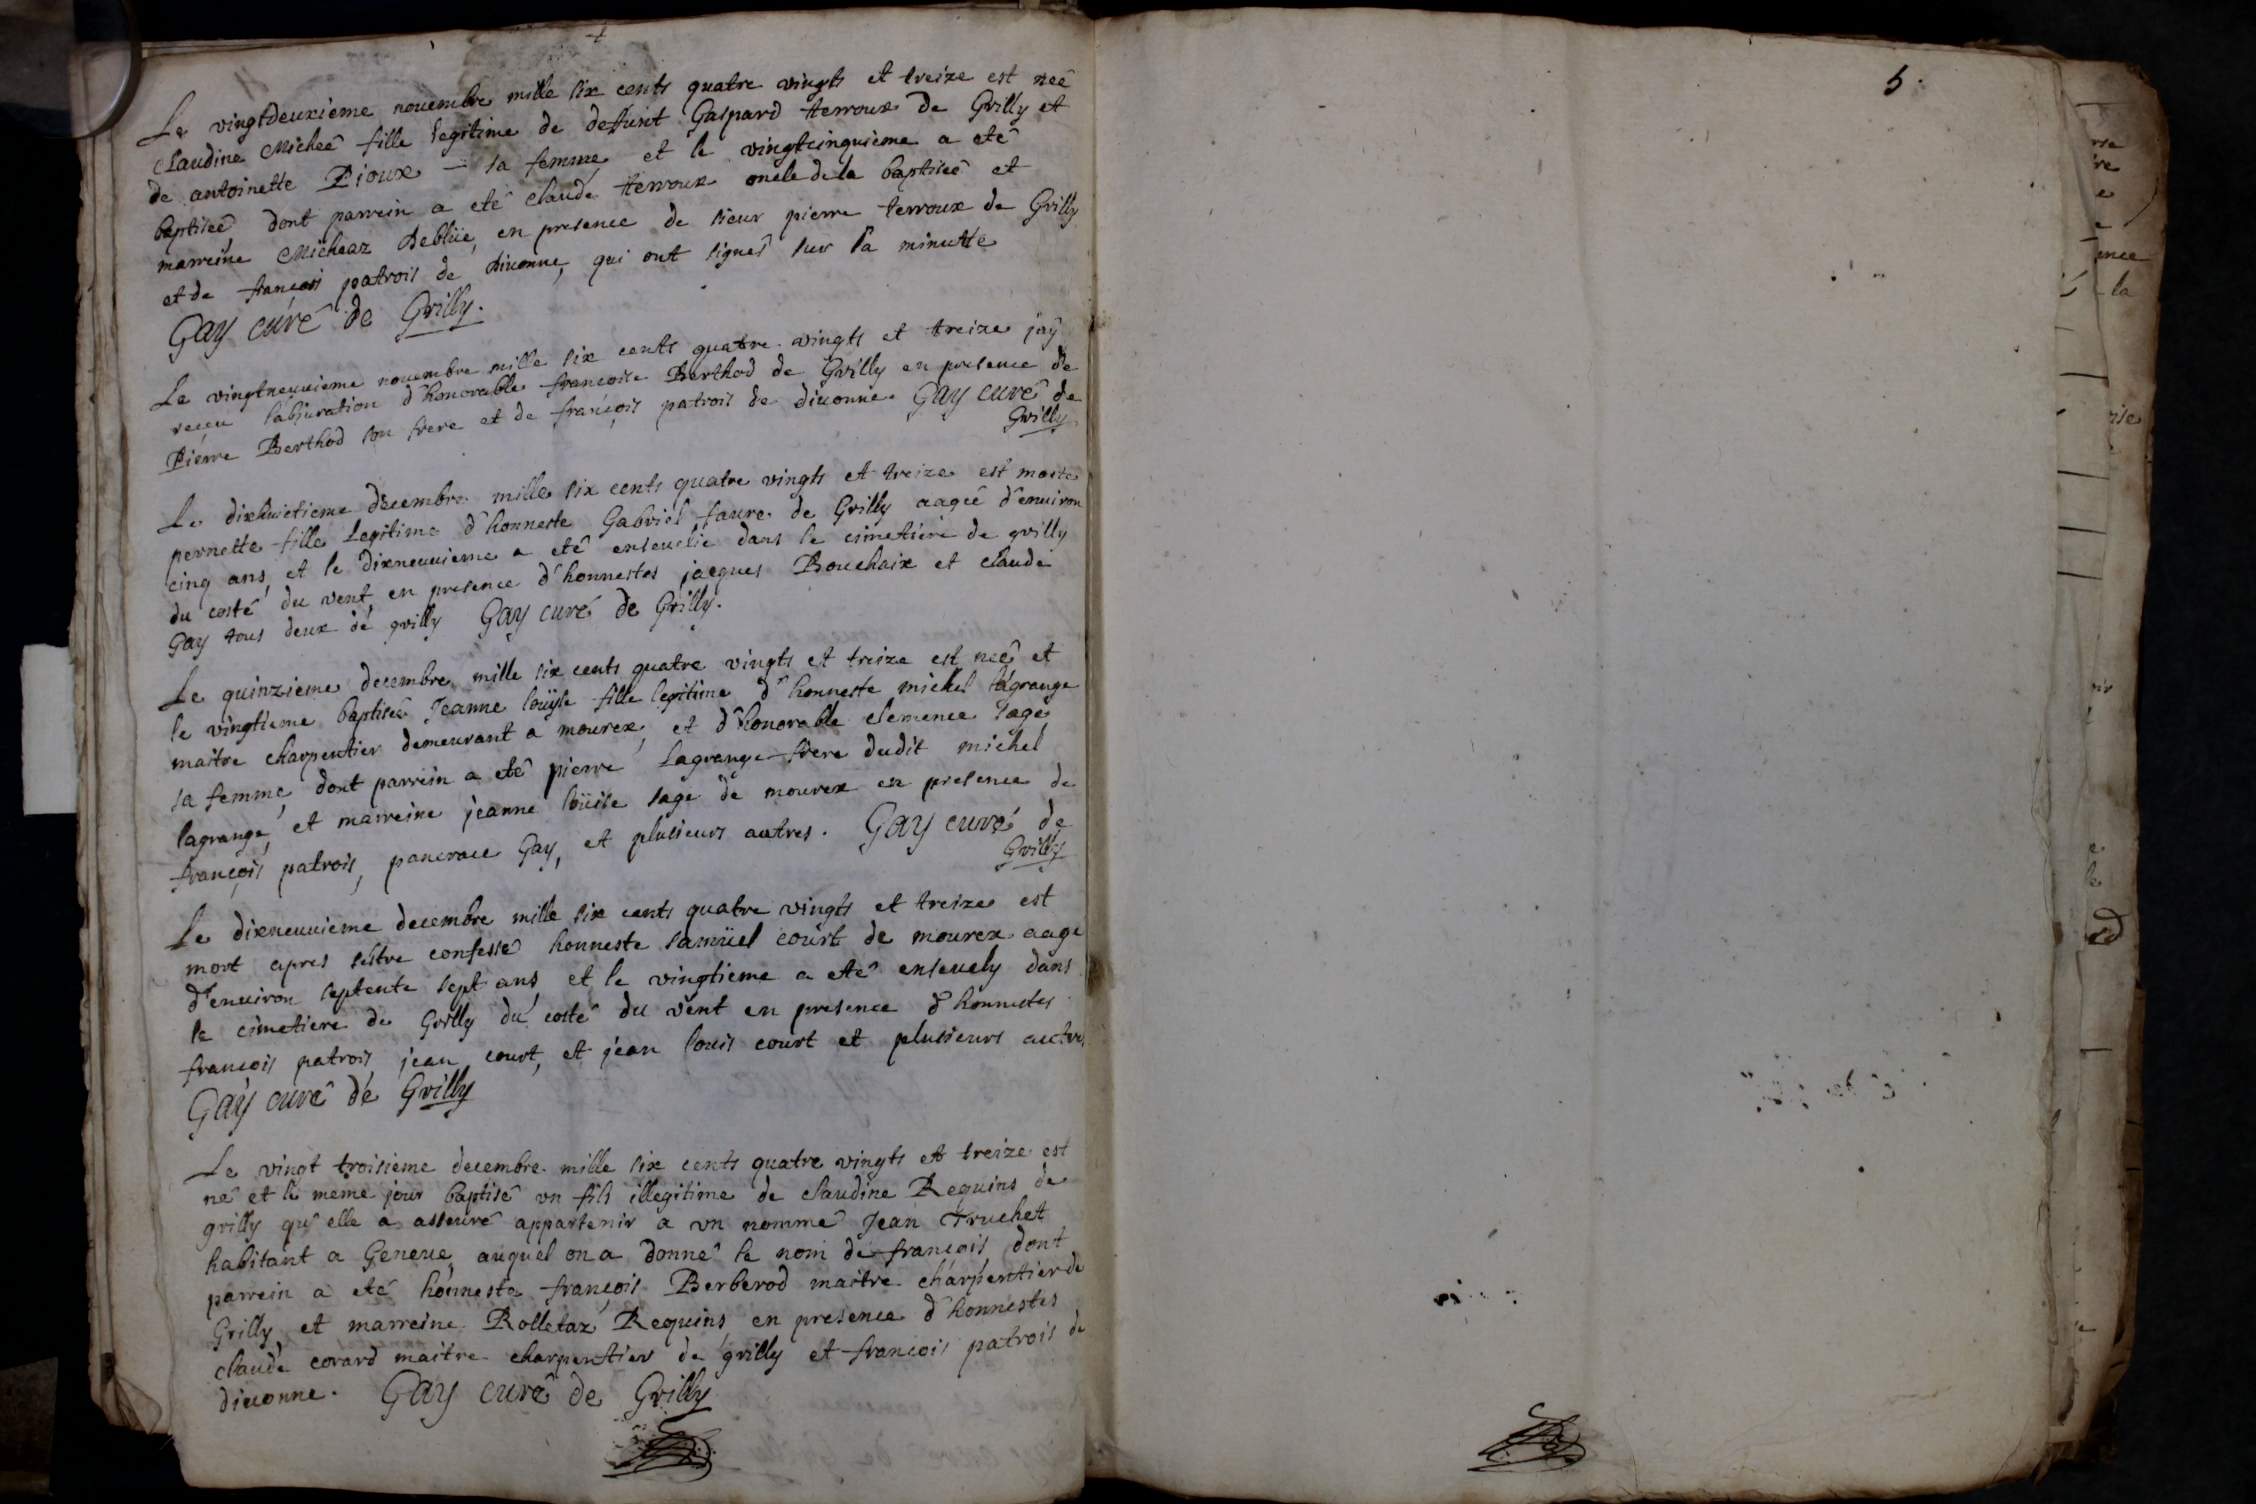 Le vingtdeuxieme nouembre mille six cents quatre vingts et treize est neê
claudine Micheê fille legitime de deffunt Gaspard terroux de Grilly et
de antoinette Pioux - sa femme, et le vingtcinquieme a etê
baptiseê dont parrein a etê claude terroux oncle de la baptiseê et
marreine Micheaz Deblüe, en presence de sieur pierre terroux de Grilly
et de françois patrois de diuonne, qui ont signeê sur la minutte
Gay curé de Grilly.
Le vingtneuuieme nouembre mille six cents quatre vingts et treize jaÿ
receu labjuration d'honorable françoise Berthod de Grilly en presence de
Pierre Berthod son frere et de françois patrois de diuonne. Gay curé de
Grilly
Le dixhuictieme decembre mille six cents quatre vingts et treize est morte
pernette fille Legitime d'honneste Gabriel faure de Grilly aageê d'enuiron
cinq ans, et le dixneuuieme a etê enseuelie dans le cimetiere de grilly
du costé du vent, en presence d'honnestes jacques Bouchaix et claude
Gay tous deux de grilly Gay curé de Grilly.
Le quinzieme decembre mille six cents quatre vingts et treize est neê et
le vingtieme baptiseê Jeanne loüyse fille legitime d'honneste michel lagrange
maitre charpentier demeurant a mourex, et d'honorable clemence sage
sa femme, dont parrein a etê pierre Lagrange frere dudit michel
lagrange, et marreine jeanne loüise sage de mourex en presence de
françois patrois, pancrace Gay, et plusieurs autres. Gay curé de
Grilly
Le dixneuuieme decembre mille six cents quatre vingts et treize est
mort apres sestre confessê honneste samüel court de mourex aage
d'enuiron septente sept ans, et le vingtieme a etê enseuely dans
le cimetiere de Grilly du costê du vent en presence d'honnestes
françois patrois, jean court, et jean louis court et plusieurs autres
Gay curê de Grilly
Le vingt troisieme decembre mille six cents quatre vingts et treize est
nê et le meme jour baptisê vn fils illegitime de claudine Requins de
grilly qu'elle a asseurê appartenir a vn nommê Jean Truchet
habitant a Geneue, auquel on a donnê le nom de françois dont
parrein a etê honneste françois Berberod maitre charpentier de
Grilly et marreine Rolletaz Requins en presence d'honnestes
claude corard maitre charpentier de grilly et françois patrois de
diuonne. Gay curê de Grilly
5